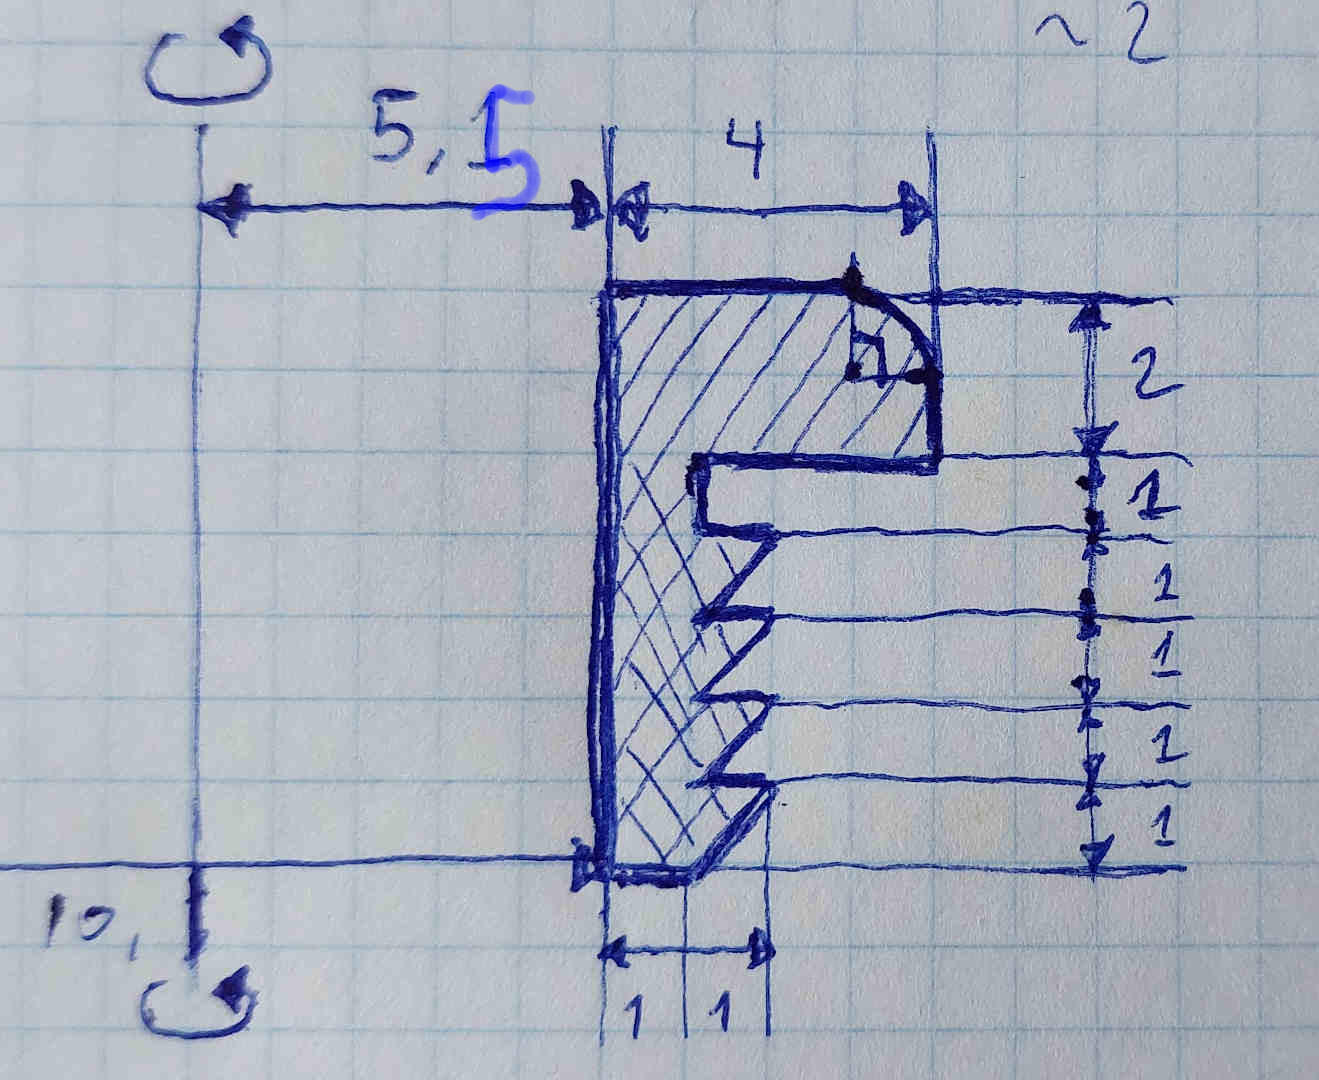 ~2
5,5
4
2
1
1
1
1
1
10,
1 1